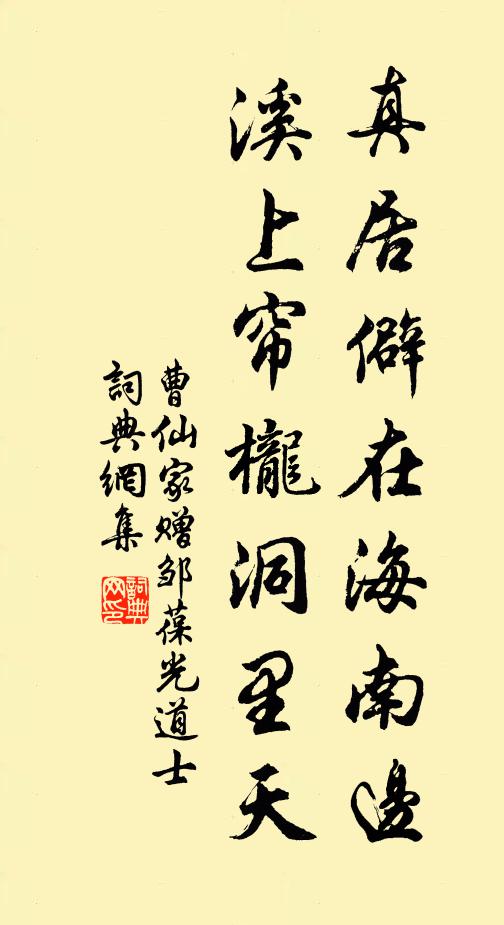 真居僻在海南邊
溪上帘櫳洞里天
曹仙家赠邹葆光道士
詞典網集
詞典网印